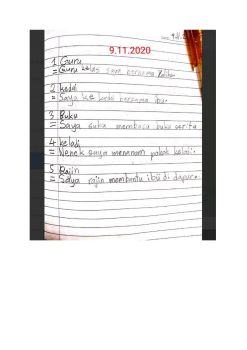 9.11.2020
1 Guru
= Guru kelas saya bernama
2 kedai
= Saya ke kedai bersama ibu.
3 Buku
= Saya suka membaca buku cerita
4 keladi
= Nenek saya menanam pokok keladi.
5 Rajin
= Saya rajin membantu ibu di dapur.